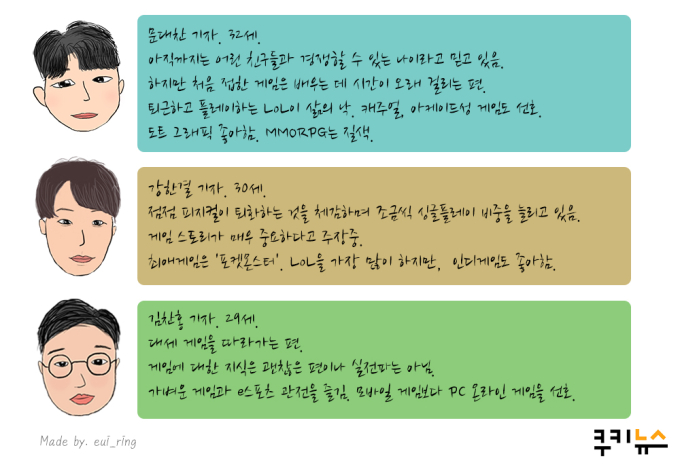 문대찬 기자. 32세.
아직까지는 어린 친구들과 경쟁할 수 있는 나이라고 믿고 있음.
하지만 처음 접한 게임은 배우는 데 시간이 오래 걸리는 편.
퇴근하고 플레이하는 LoL이 삶의 낙. 캐주얼, 아케이드성 게임도 선호.
도트 그래픽 좋아함. MMORPG는 질색.
강한결 기자. 30세.
점점 피지컬이 퇴화하는 것을 체감하며 조금씩 싱글플레이 비중을 늘리고 있음.
게임 스토리가 매우 중요하다고 주장중.
최애게임은 '포켓몬스터'. LoL을 가장 많이 하지만, 인디게임도 좋아함.
김찬홍 기자. 29세.
대세 게임을 따라가는 편.
게임에 대한 지식은 괜찮은 편이나 실전파는 아님.
가벼운 게임과 e스포츠 관전을 즐김. 모바일 게임보다 PC 온라인 게임을 선호.
Made by. eui_ring
쿠키뉴스